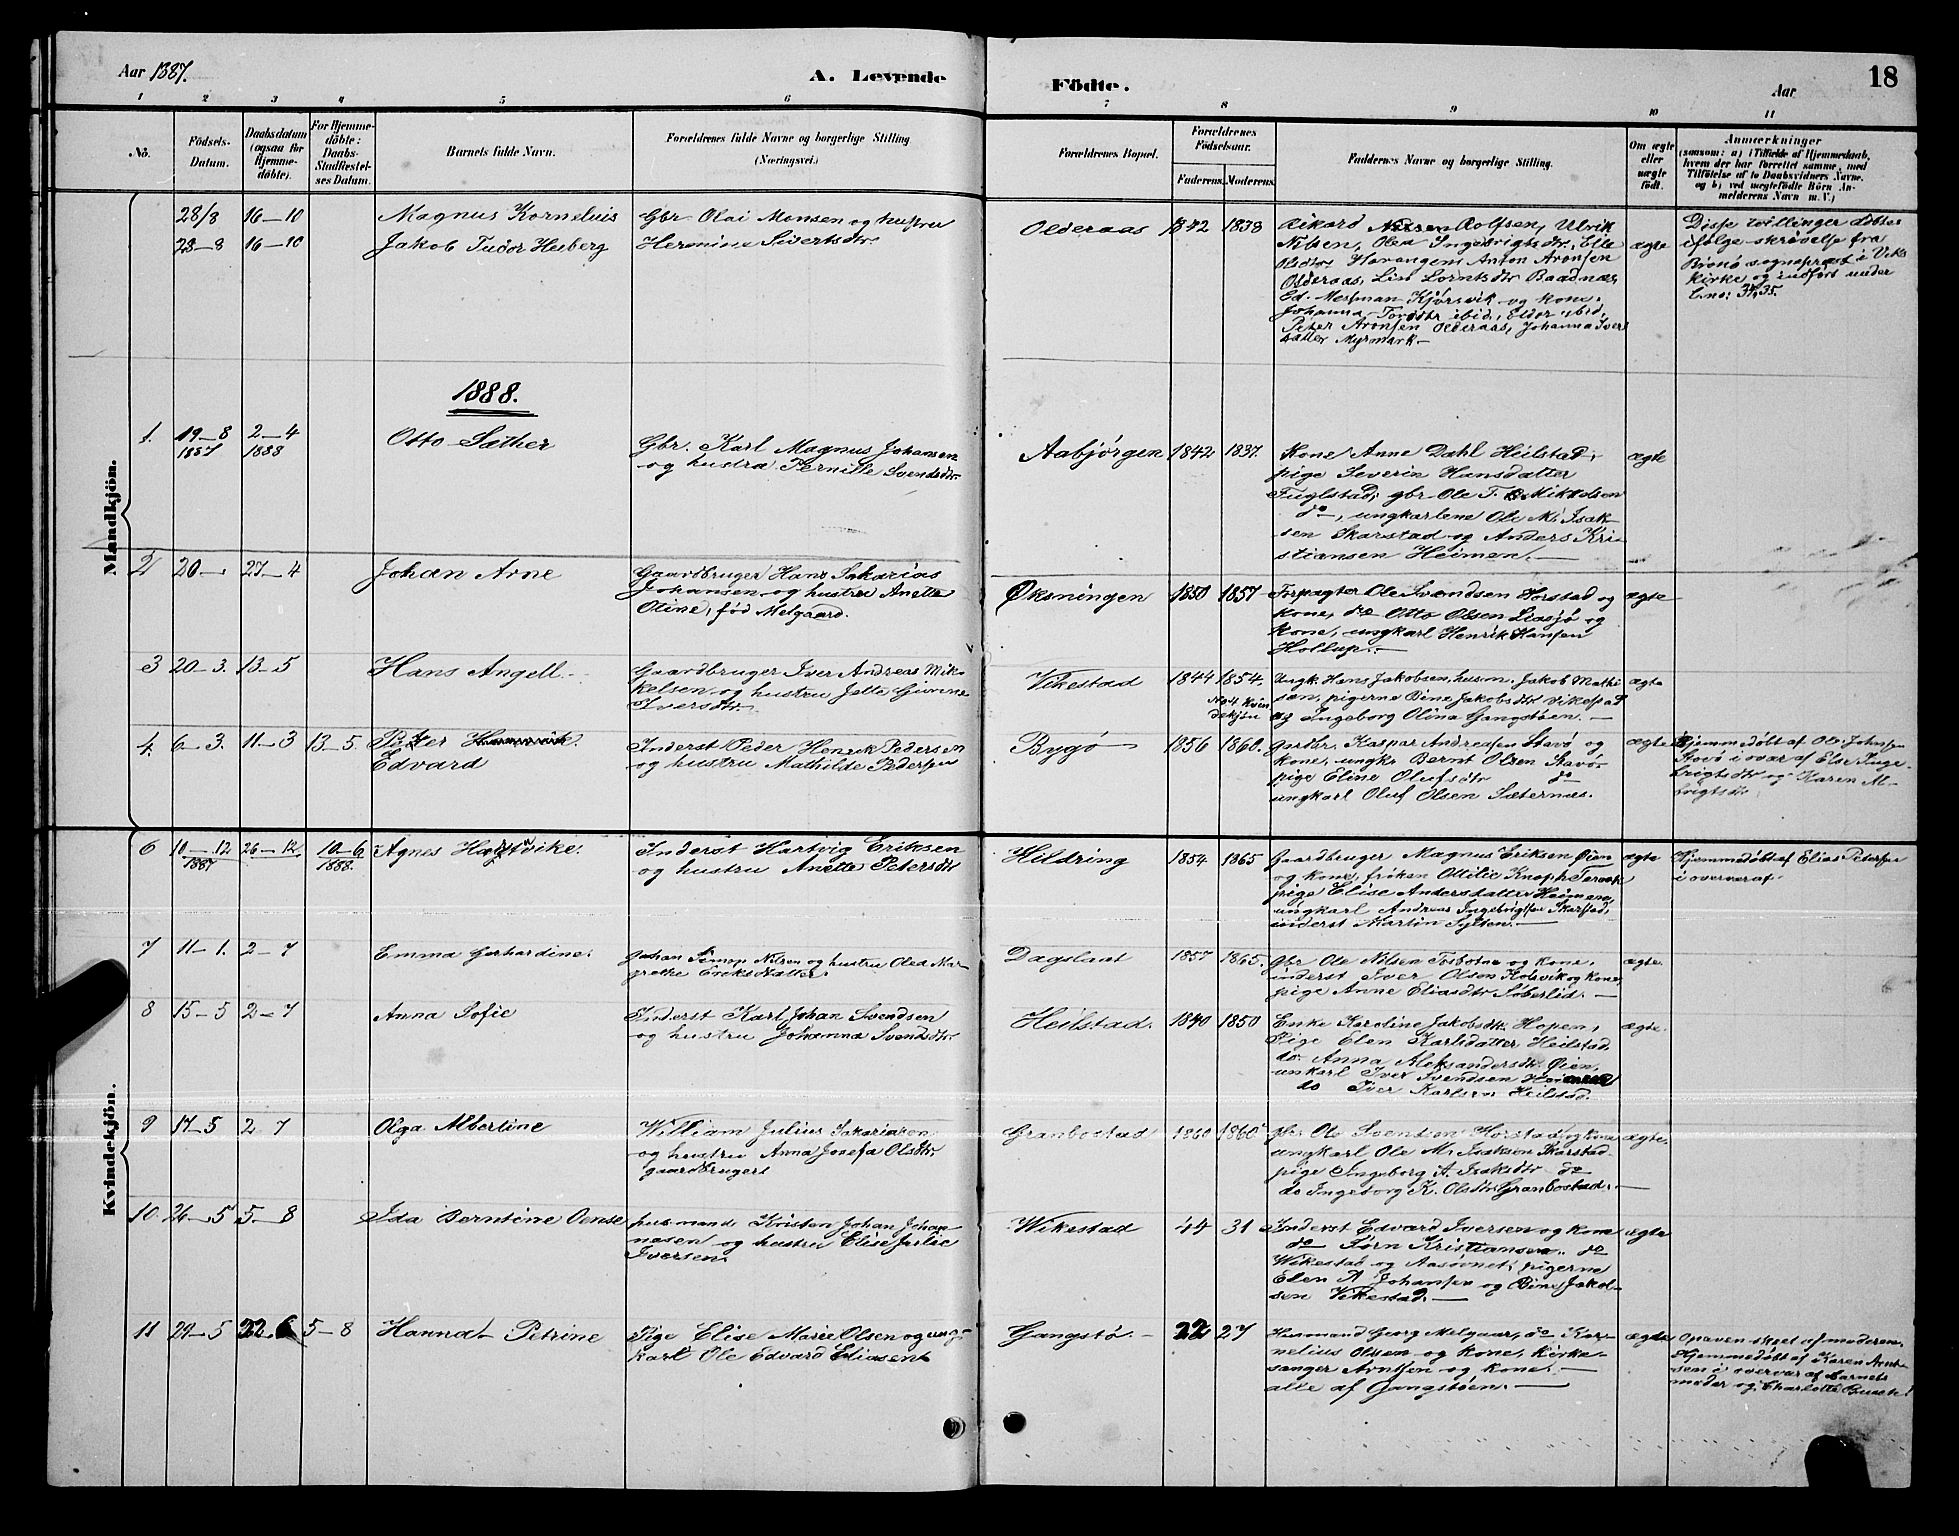 Aar 1887.
A. Levende
Födte.
Aar
18
1 2 3 4 5 6 7 8 9 10 11
No.
Födsels-
Datum.
Daabsdatum
(ogsaa for
Hjemme-
döbte).
For Hjemme-
döbte:
Daabs-
Stadfæstel-
ses Datum.
Barnets fulde Navn.
Forældrenes fulde Navne og borgerlige Stilling
(Næringsvei.)
Forældrenes Bopæl.
Forældrenes
Födselsaar.
Faderens. Moderens.
Faddernes Navne og borgerlige Stilling.
Om ægte
eller
uægte
födt.
Anmærkninger
(saasom: a) i Tilfælde af Hjemmedaab,
hvem der har forrettet samme, med
Tilföielse af to Daabsvidners Navne.
og b) ved uægtefödte Börn An-
melderens Navn m. V.)
28/8 16–10 Magnus Kornelius
28–8 16–10 Jakob Tudor Heiberg
Gbr. Olai Monsen og hustru
Hermine Sivertsdtr.
Olderaas 1842 1838
Rikard Rolfsen, Ulrik
Nilsen, Olea Ingebrigtsdtr, Elle
Olsdtr Horvangen, Anton Aronsen
Olderaas, Lin Lorntsdtr Baadnæs,
Ed. Messman Kjørsvik og kone,
Johanna Torsdtr ibid., Eldor ibid.,
Peter Aronsen Olderaas, Johanna Ivers
datter Myrmark.–
ægte
Disse tvillinger døbtes
ifølge skrivelse fra
Brønø sogneprest i Viks
kirke og indført under
L.no: 34, 35.
1888.
Mandkjön.
1. 19–8 2–4 Otto Sæther
1887 1888
Gbr. Karl Magnus Johansen
og hustru Pernille Svendsdtr.
Aabjørgen 1842 1837.
Kone Anne Dahl Heilstad,
pige Severin Hansdatter
Fuglstad, gbr. Ole T. Mikkelsen
do, ungkarlene Ole M. Isak-
sen Skarstad og Anders Kri-
stiansen Heimen.–
ægte
2 20– 27–4 Johan Arne
Gaardbruger Hans Sakarias
Johansen og hustru Anette
Oline, fød Melgaard.
Øksningen 1850 1857
Forpagter Ole Svendsen Horstad og
kone, do Otto Olsen Liasjø og
kone, ungkarl Henrik Hansen
Hollup.–
ægte
3 20–3. 13–5 Hans Angell.
Gaardbruger Iver Andreas Mik-
kelsen og hustru Jette Givrine
Iversdtr.
Vikestad 1844 1854.
No 4 Kvin
dekjön
Ungk. Hans Jakobsen, husm. Jakob Mathi-
sen, pigerne Bine Jakobsdtr Vikestad
og Ingeborg Olina Gangstøen.–
ægte
4. 6–3. 11–3 13–5. Peter
Edvard
Inderst Peder Henrik Pedersen
og hustru Mathilde Pedersen
Bygø 1856 1860.
Gaardbr. Kaspar Andreasen Stavø og
kone, ungkr Bernt Olsen Stavø,
pige Eline Olufsdtr do
ungkarl Oluf Olsen Sæternæs.
ægte
Hjemmedøbt af Ole Johnsen
Stovø i overvær af Else Inge-
brigtsdtr og Karen M-
brigtsdtr
Kvindekjön.
6 10–12 26–12 10–6 Agnes Hartvike.
1887 1888.
Inderst Hartvig Eriksen
og hustru Anette Petersdtr
Hildring 1854 1865
Gaardbruger Magnus Eriksen Øien
og kone, frøken Ottilie Knoph Teraak
pige Elise Andersdatter Heimen,
ungkarl Andreas Ingebrigtsen Skarstad,
inderst Martin Sylten.–
ægte
Hjemmedøbt af Elias Petersen
i overvær af
7 11–1. 2–7 Emma Gerhardine.
Johan Simon Nilsen og hustru Olea Mar-
grethe Eriksdatter
Dagslaat 1857 1865.
Gbr. Ole Nilsen Tosbotne og kone,
inderst Iver Olsen Kolsvik og kone,
pige Anne Eliasdtr Søberlid.–
ægte.
8 15–5 2–7 Anna Sofie
Inderst Karl Johan Svendsen
og hustru Johanna Svendsdtr.
Heilstad. 1840 1850
Enke Karoline Jakobsdtr. Hopen,
Pige Elen Karlsdatter Heilstad,
do. Anna Aleksandersdtr Øien,
unkarl Iver Svendsen Heimen
do Iver Karlsen Heilstad.
ægte.
9 17–5 2 7 Olga Albertine
William Julius Sakariasen
og hustru Anna Josefa Olsdtr.
gaardbrugere
Granbostad 1860 1860
gbr. Ole Svendsen Horstad og kone
ungkarl Ole M. Isaksen Skarstad,
pige Ingeborg A. Isaksdtr do
do Ingeborg K. Olsdtr Granbostad.–
ægte.
10 26–5 5–8 Ida Berntine Oense
husmand Kristen Johan Johan-
nesen og hustru Elise Julie
Iversen.
Wikestad 44 31
Inderst Edvard Iversen og kone
do Jørn Kristiansen do
Wikestad og Aasøvnet, pigerne
Elen A Johansen og Bine Jakob-
sen Vikestad.–
ægte
11 29–5 22–6 5–8 Hanna Petrine
Pige Elise Marie Olsen og ung-
karl Ole Edvard Eliasen
Gangstø.– 22 27
Husmand Georg Melgaar, do Kor-
nelius Olsen og kone, kirke-
sanger Arntsen og kone.–
alle af Gangstøen.–
ægte
Opgaven skeet af moderen.
Hjemmedøbt af Karen Arnt-
sen i overvær af barnets
moder og Charlotte Busch.